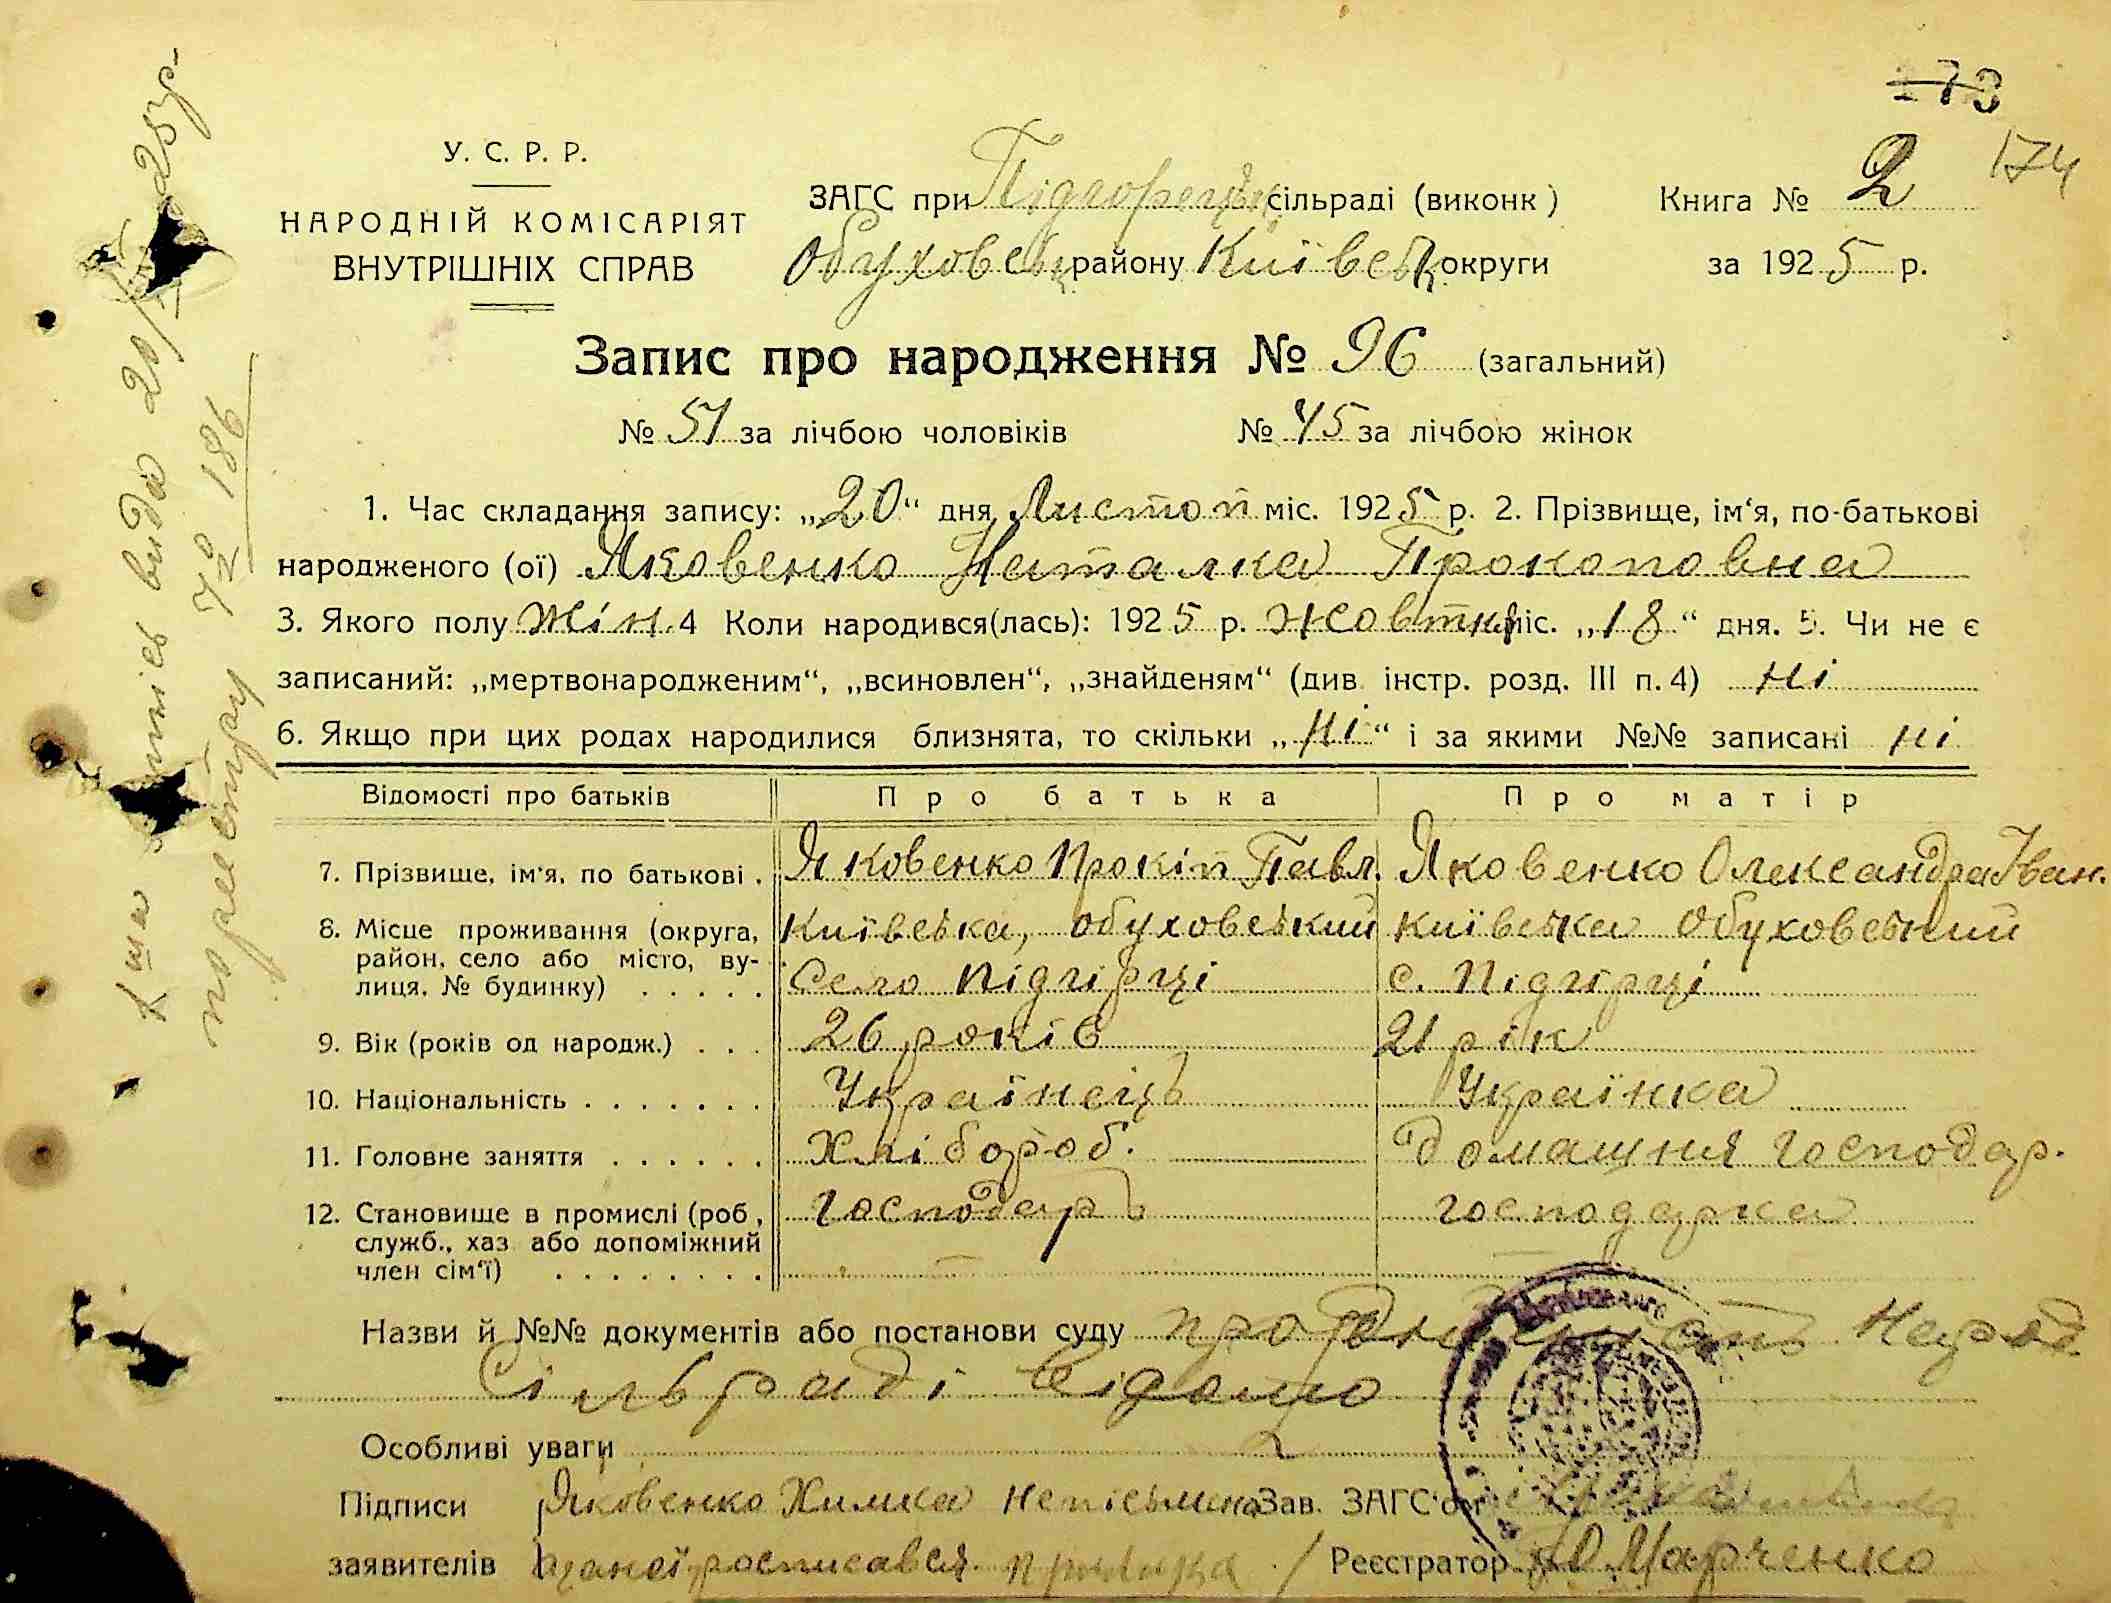 173
174
У. С. Р. Р.
НАРОДНІЙ КОМІСАРІЯТ
ВНУТРІШНІХ СПРАВ
ЗАГС при Підгорецькій сільраді (виконк)
Обуховськ району Київськ округи
Книга № 2
за 1925 р.
Запис про народження № 96 (загальний)
№ 51 за лічбою чоловіків № 45 за лічбою жінок
1. Час складання запису: „20“ дня Листоп міс. 1925 р. 2. Прізвище, ім‘я, по-батькові
народженого (ої) Яковенко Наталка Прокоповна
3. Якого полу жін. 4 Коли народився(лась): 1925 р. жовтня міс. „18“ дня. 5. Чи не є
записаний: „мертвонародженим“, „всиновлен“, „знайденям“ (див. інстр. розд. III п. 4) ні
6. Якщо при цих родах народилися близнята, то скільки „ні“ і за якими №№ записані ні
Відомості про батьків Про батька Про матір
7. Прізвище, ім‘я, по батькові . Яковенко Прокіп Павл. Яковенко Олександра Іван.
8. Місце проживання (округа, Київська, обуховський київська обуховський
район, село або місто, ву-
лиця, № будинку) . . . . . Село Підгірці с. Підгірці
9. Вік (років од народж.) . . . 26 років 21 рік
10. Національність . . . . . . . Українець Українка
11. Головне заняття . . . . . . Хлібороб. домашня господар.
12. Становище в промислі (роб., господарь господарка
служб., хаз або допоміжний
член сім‘ї) . . . . . . . .
Назви й №№ документів або постанови суду про народ
Сільраді відомо
Особливі уваги
Підписи Яковенко Химка неписьмена Зав. ЗАГС‘ом
заявителів за неї росписався Реєстратор Марченко
виписъ видо 2
25 р.
по реєстру № 186